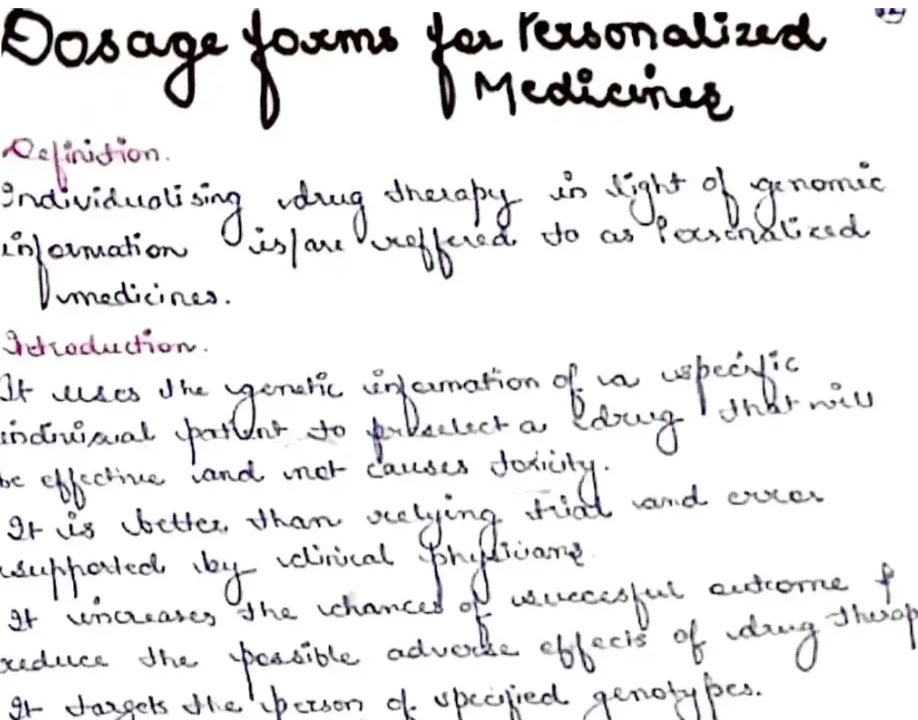 Dosage forms for Personalized
Medicines
Definition.
Individualising drug therapy in light of genomic
information is/are reffered to as Personalized
medicines.
Introduction.
It uses the genetic information of a specific
individual patient to preselect a drug that will
be effective and not causes toxicity.
It is better than relying trial and error
supported by clinical physicians
It increases the chances of successful outcome &
reduce the possible adverse effects of drug therap
It targets the person of specified genotypes.